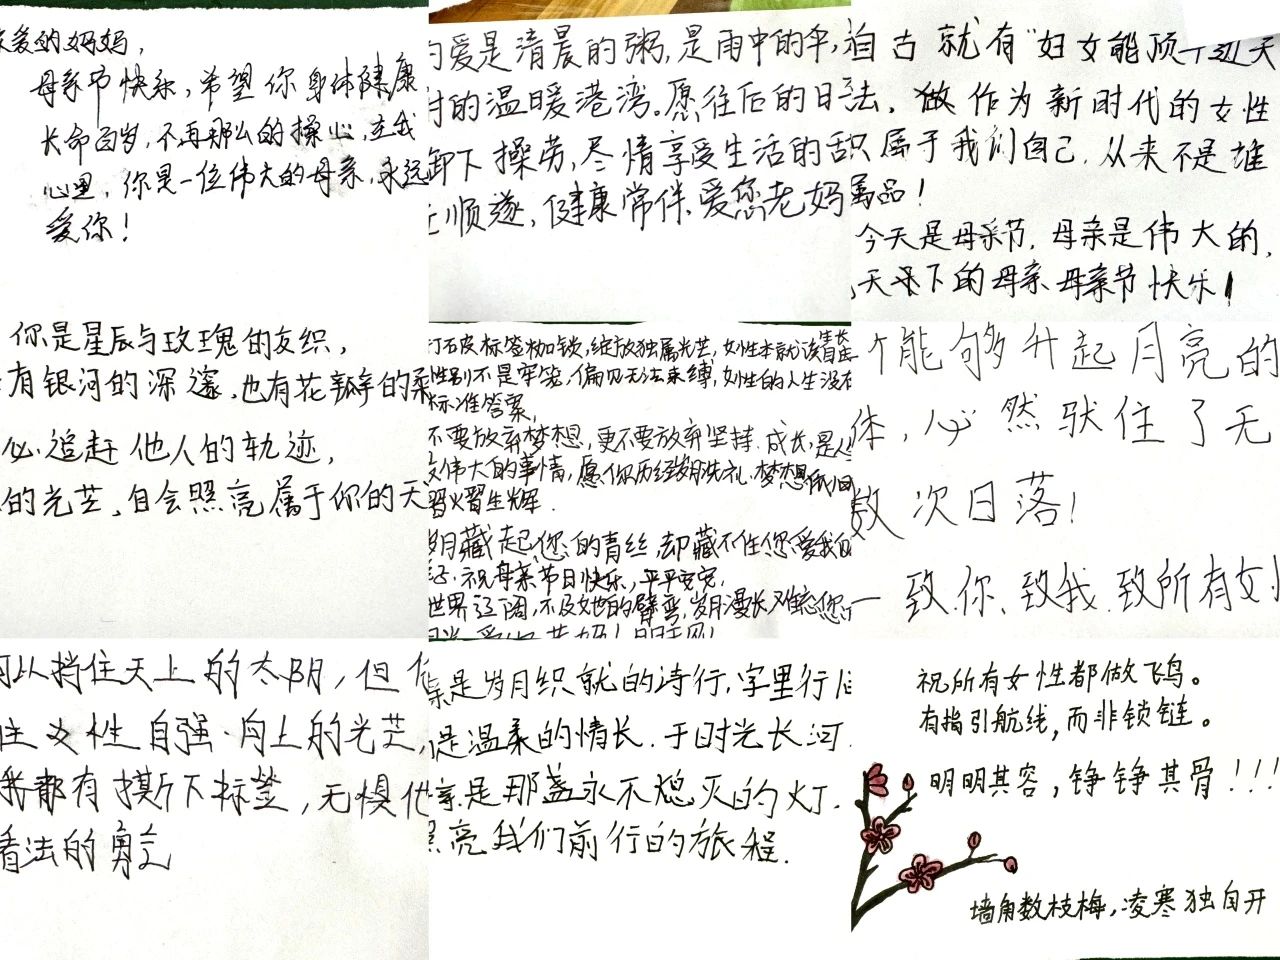 亲爱的妈妈，
母亲节快乐，希望你身体健康
长命百岁，不再那么的操心，在我
心里，你是一位伟大的母亲，永远
爱你！
的爱是清晨的粥，是雨中的伞，
的温暖港湾。愿往后的日
卸下操劳，尽情享受生活的甜
顺遂，健康常伴，爱您老妈
自古就有“妇女能顶一边天
法，做作为新时代的女性
属于我们自己，从来不是谁
属品！
今天是母亲节，母亲是伟大的，
天下的母亲母亲节快乐！
你是星辰与玫瑰的交织，
有银河的深邃，也有花瓣的柔
必追赶他人的轨迹，
的光芒，自会照亮属于你的天
打破标签枷锁，绽放独属光芒，女性本就该
性别不是牢笼，偏见无法束缚，女性的人生没有
标准答案，
不要放弃梦想，更不要放弃坚持，成长，是
伟大的事情，愿你历经岁月洗礼，梦想依旧
熠熠生辉．
岁月藏起您的青丝，却藏不住您爱我的
祝母亲节日快乐，平平安安，
世界辽阔，不及她的臂弯，岁月漫长又难忘您
个能够升起月亮的
体，必然驮住了无
数次日落！
一致你、致我、致所有女
可以挡住天上的太阳，但
住女性自强·向上的光芒，
我都有撕下标签，无惧他
看法的勇气
是岁月织就的诗行，字里行间
是温柔的情长．于时光长河．
是那盏永不熄灭的灯．
照亮我们前行的旅程．
祝所有女性都做飞鸟。
有指引航线，而非锁链。
明明其容，铮铮其骨！！！
墙角数枝梅，凌寒独自开